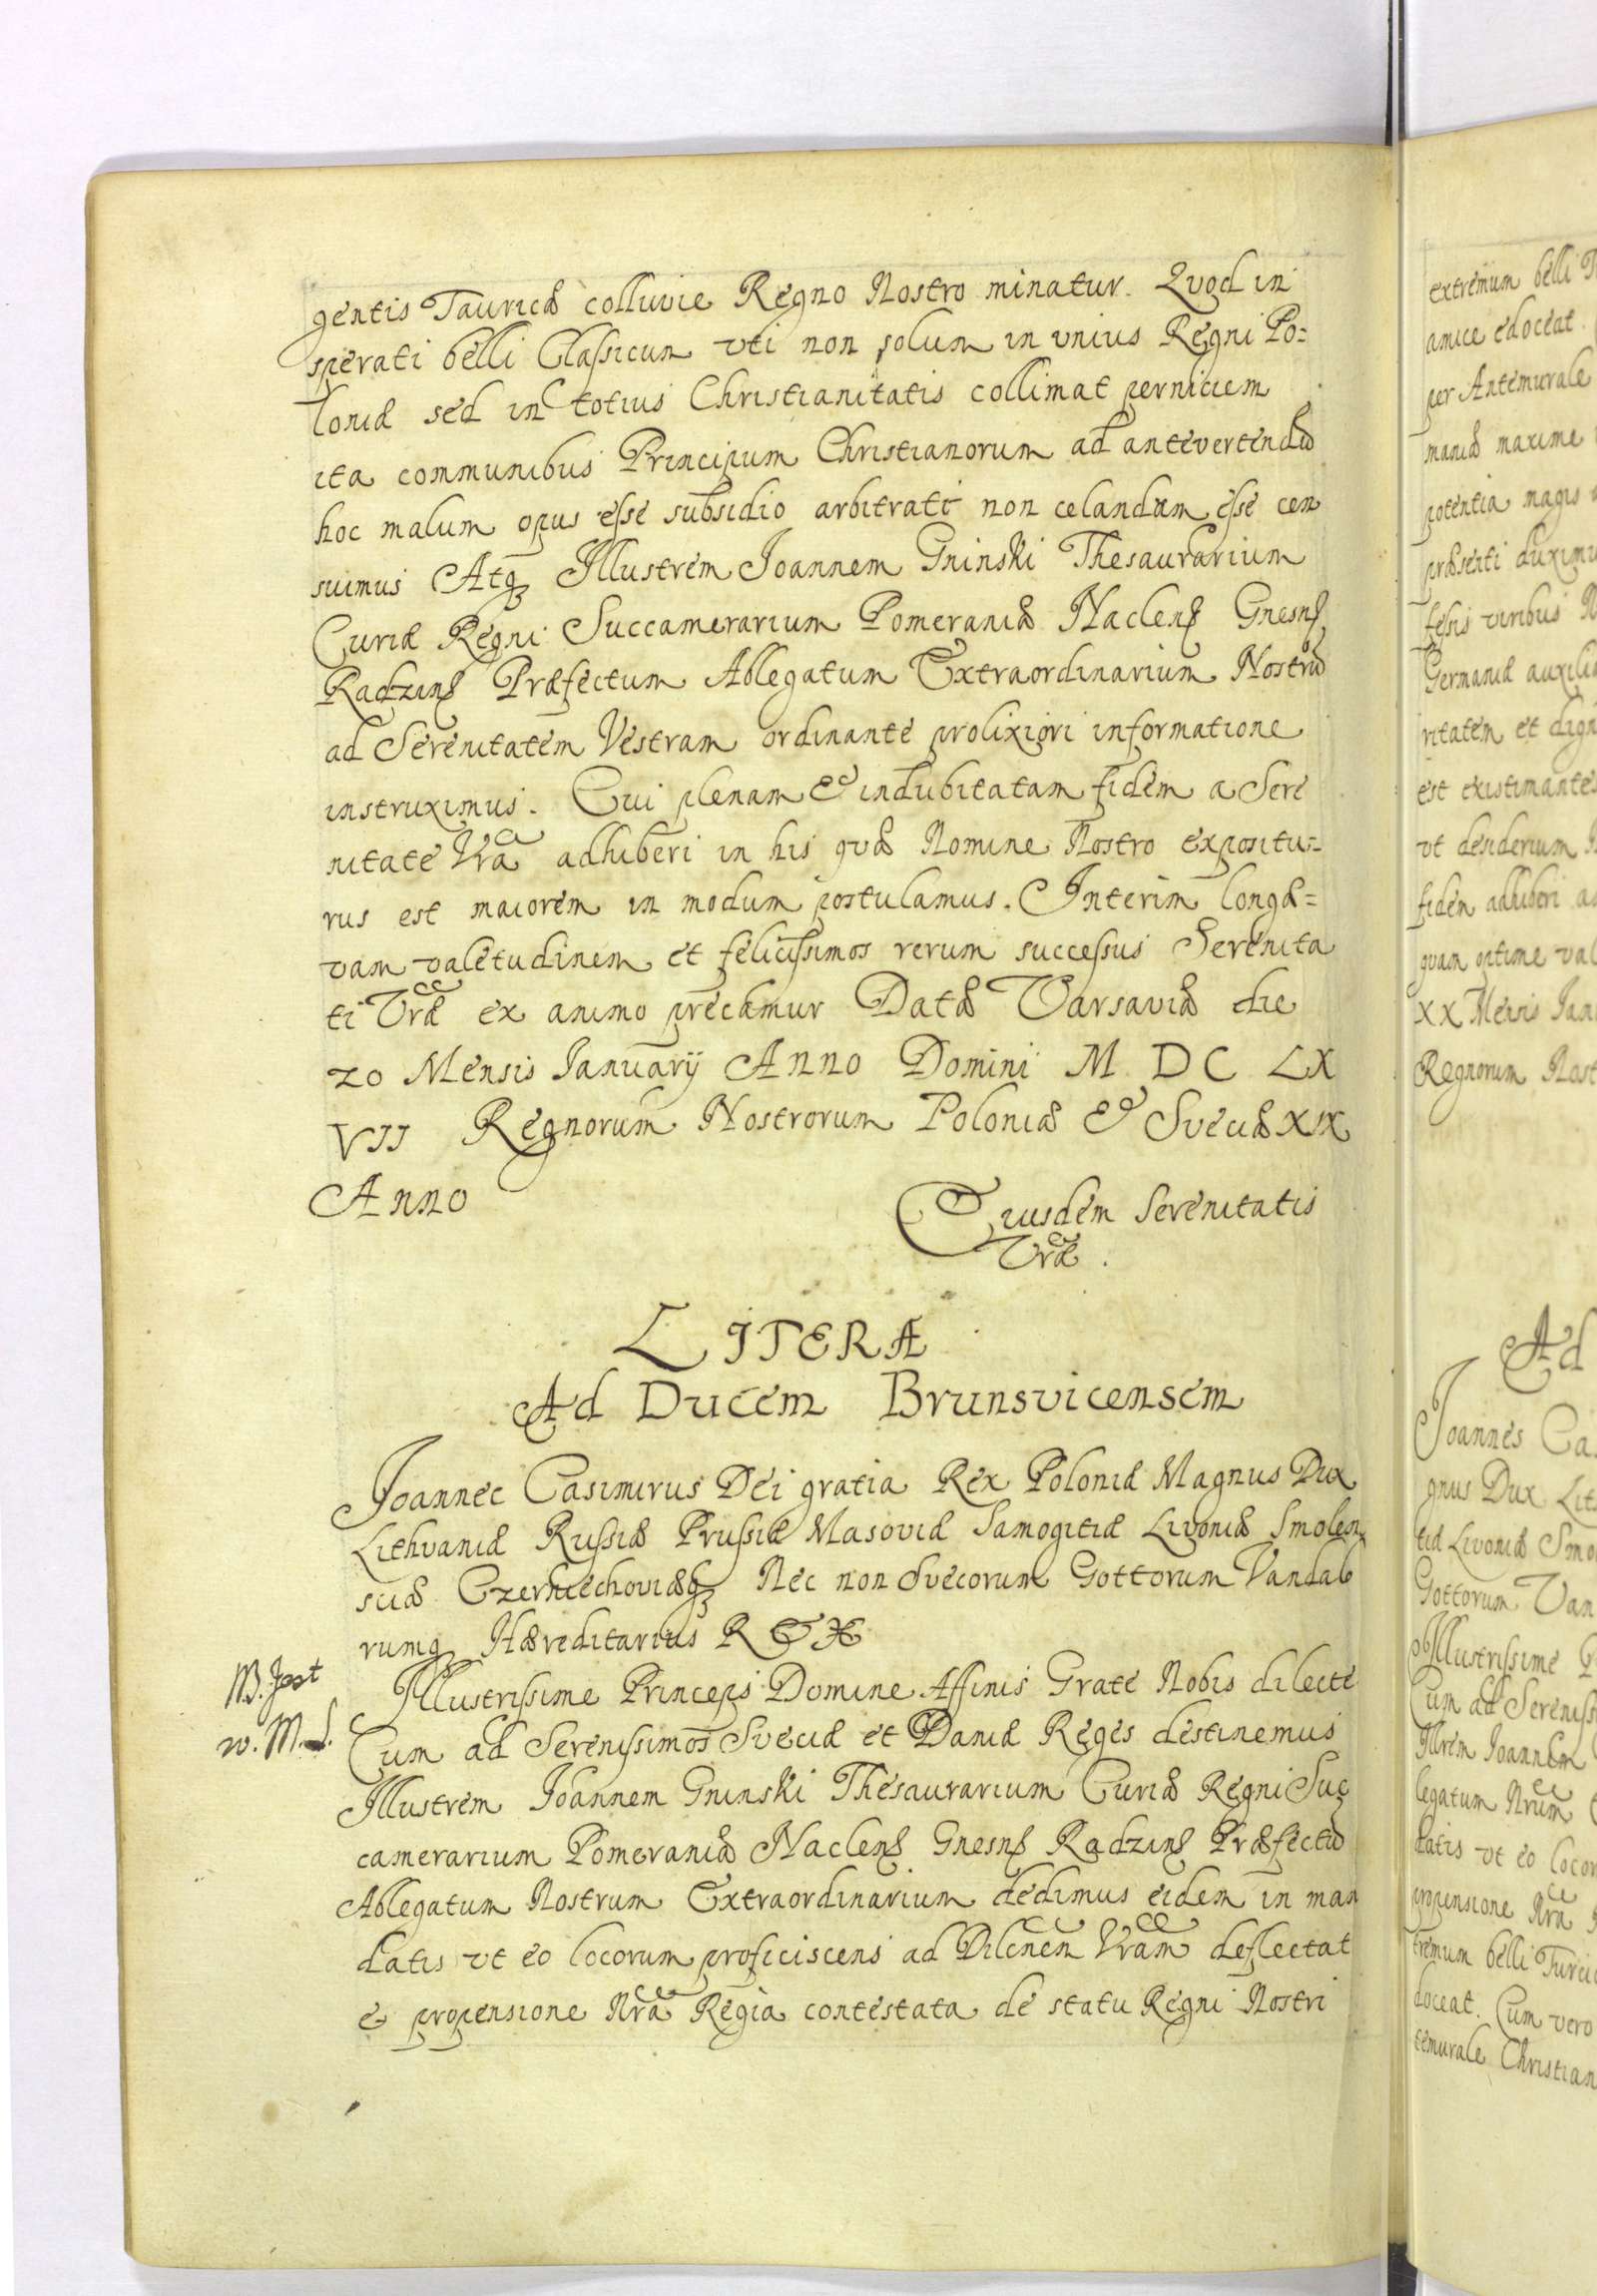 gentis Tauricæ colluvie Regno Nostro minatur. Quod in
sperati belli Classicum uti non solum in unius Regni Po=
loniæ sed in totius Christianitatis collimat perniciem
ita communibus Principum Christianorum ad antevertendũ
hoc malum opus esse subsidio arbitrati non celandam esse cen
suimus Atq Illustrem Joannem Gninski Thesaurarium
Curiæ Regni Succamerarium Pomeraniæ Naclens Gnesns
Radzins Præfectum Ablegatum Extraordinarium Nostrũ
ad Serenitatem Vestram ordinante prolixiori informatione
instruximus. Cui plenam & indubitatam fidem a Sere
nitate Vrã adhiberi in his quæ Nomine Nostro expositu=
rus est maiorem in modum postulamus. Interim longæ=
vam valetudinem et felicissimos rerum successus Serenita
ti Vræ ex animo precamur Datæ Varsaviæ die
20 Mensis Januarij Anno Domini M DC LX
VII Regnorum Nostrorum Poloniæ & Sveciæ XIX
Anno
Eiusdem Serenitatis
Vræ.
LITERÆ
Ad Ducem Brunsvicensem
Joannec Casimirus Dei gratia Rex Poloniæ Magnus Dux
Lithvaniæ Russiæ Prussiæ Masoviæ Samogitiæ Livoniæ Smolen
sciæ Czerniechoviæq Nec non Svecorum Gottorum Vandalo
rumq Hæreditarius REX
Illustrissime Princeps Domine Affinis Grate Nobis dilecte
M. Jest
w. M. S.
Cum ad Serenissimos Sveciæ et Daniæ Reges destinemus
Illustrem Joannem Gninski Thesaurarium Curiæ Regni Suc
camerarium Pomeraniæ Naclens Gnesns Radzins Præfectũ
Ablegatum Nostrum Extraordinarium dedimus eidem in man
datis ut eo locorum proficiscens ad Dilcnem Vram deflectat
& propensione Nrã Regia contestata de statu Regni Nostri
extremum belli
amice edoceat.
per Antemurale
maniæ maxime
potentia magis
præsenti duximu
fessis viribus
Germaniæ auxilia
ritatem et dign
est existimantes
ut desiderium
fidem adhiberi
quam optime val
XX Mensis Jan
Regnorum Nost
Ad
Joannes Ca
gnus Dux Lit
tiæ Livoniæ Smo
Gottorum Van
Illustrissime P
Cum ad Sereniss
Illrem Joannem
legatum Nrum
datis ut eo locor
propensione Nrã
tremum belli Turci
doceat. Cum vero
temurale Christian